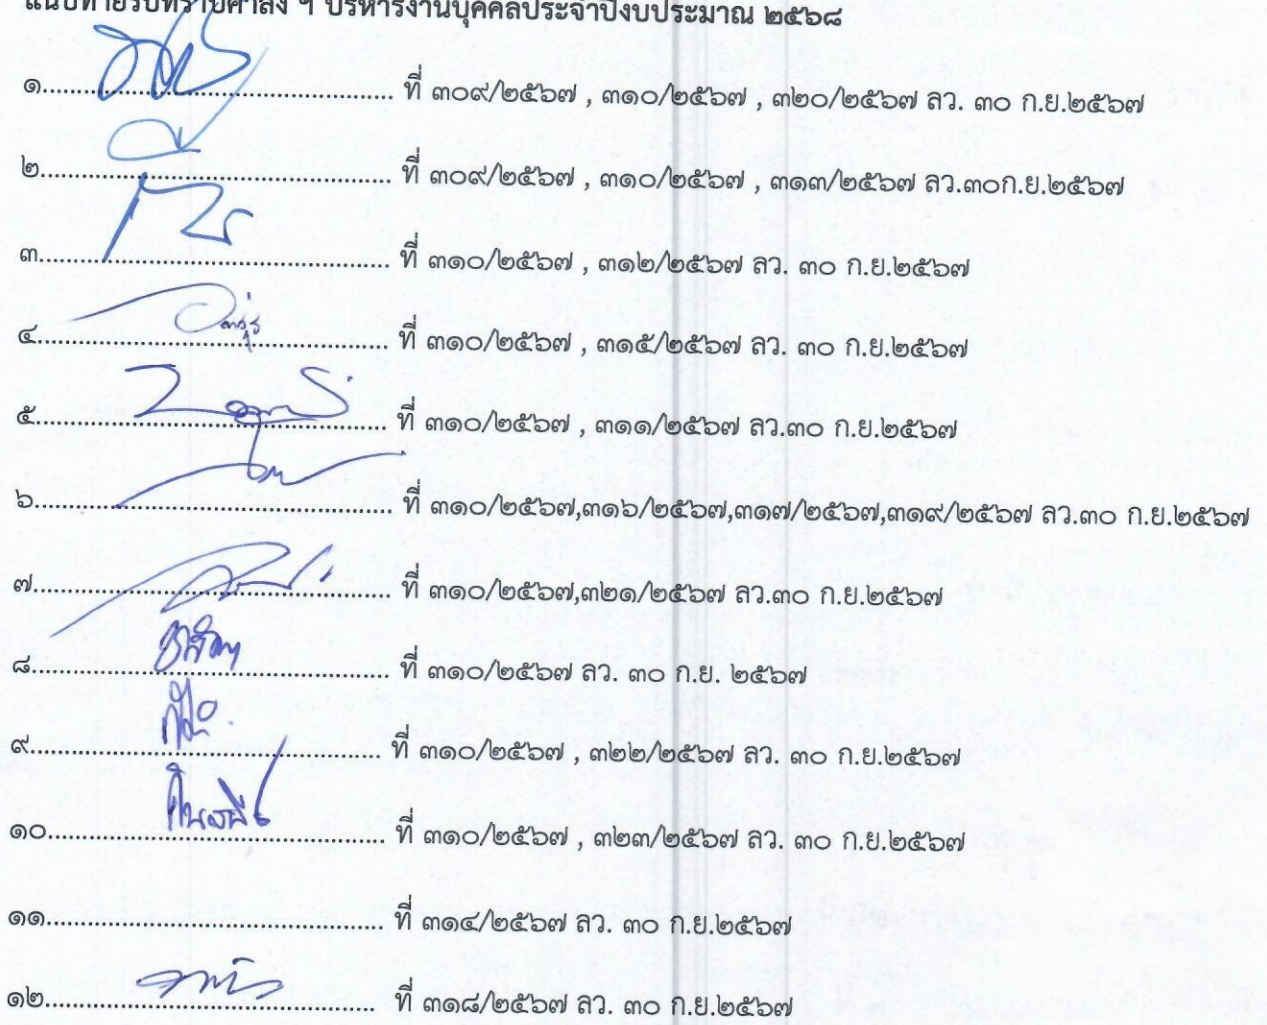 แนบท้ายรับทราบคำสั่ง ฯ บริหารงานบุคคลประจำปีงบประมาณ ๒๕๖๘
๑.................................................. ที่ ๓๐๙/๒๕๖๗ , ๓๑๐/๒๕๖๗ , ๓๒๐/๒๕๖๗ ลว. ๓๐ ก.ย.๒๕๖๗
๒.................................................. ที่ ๓๐๙/๒๕๖๗ , ๓๑๐/๒๕๖๗ , ๓๑๓/๒๕๖๗ ลว.๓๐ก.ย.๒๕๖๗
๓.................................................. ที่ ๓๑๐/๒๕๖๗ , ๓๑๒/๒๕๖๗ ลว. ๓๐ ก.ย.๒๕๖๗
๔.................................................. ที่ ๓๑๐/๒๕๖๗ , ๓๑๕/๒๕๖๗ ลว. ๓๐ ก.ย.๒๕๖๗
๕.................................................. ที่ ๓๑๐/๒๕๖๗ , ๓๑๑/๒๕๖๗ ลว.๓๐ ก.ย.๒๕๖๗
๖.................................................. ที่ ๓๑๐/๒๕๖๗,๓๑๖/๒๕๖๗,๓๑๗/๒๕๖๗,๓๑๙/๒๕๖๗ ลว.๓๐ ก.ย.๒๕๖๗
๗.................................................. ที่ ๓๑๐/๒๕๖๗,๓๒๑/๒๕๖๗ ลว.๓๐ ก.ย.๒๕๖๗
๘.................................................. ที่ ๓๑๐/๒๕๖๗ ลว. ๓๐ ก.ย. ๒๕๖๗
๙.................................................. ที่ ๓๑๐/๒๕๖๗ , ๓๒๒/๒๕๖๗ ลว. ๓๐ ก.ย.๒๕๖๗
๑๐................................................ ที่ ๓๑๐/๒๕๖๗ , ๓๒๓/๒๕๖๗ ลว. ๓๐ ก.ย.๒๕๖๗
๑๑................................................ ที่ ๓๑๔/๒๕๖๗ ลว. ๓๐ ก.ย.๒๕๖๗
๑๒................................................ ที่ ๓๑๘/๒๕๖๗ ลว. ๓๐ ก.ย.๒๕๖๗